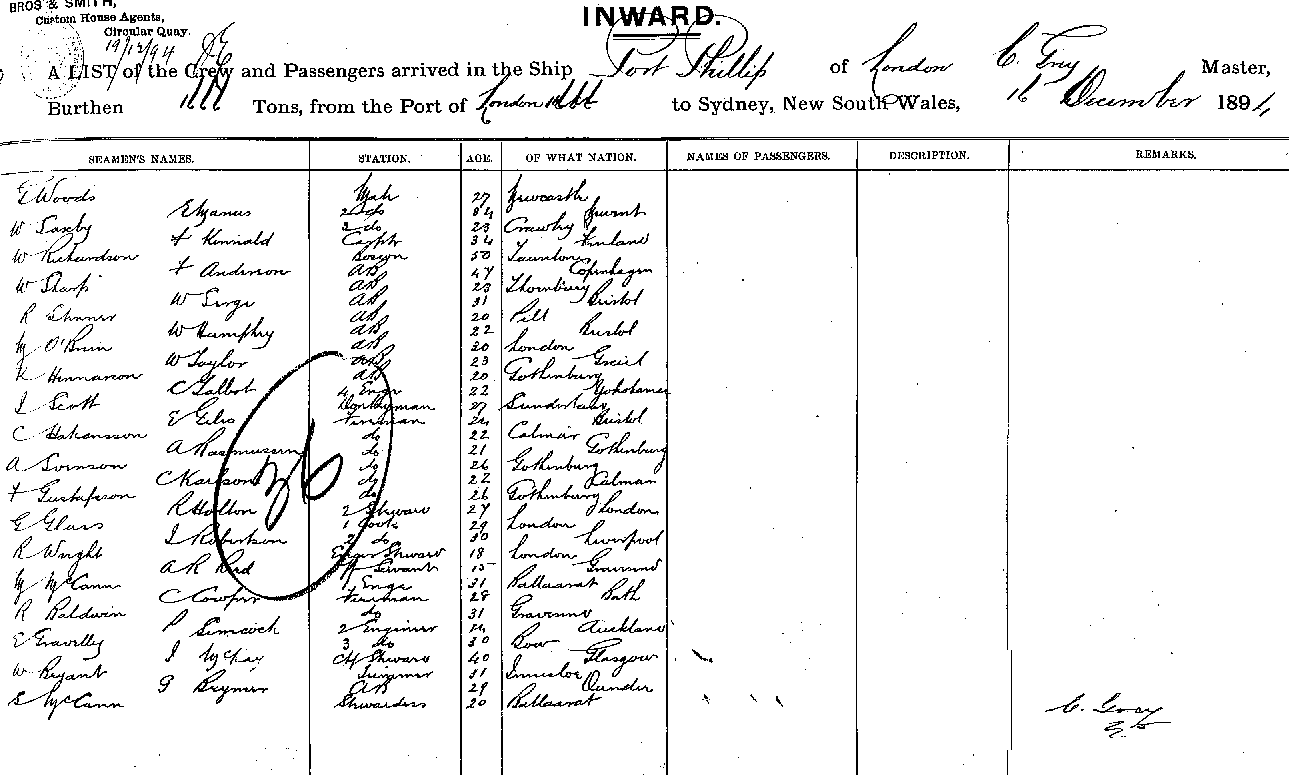 BROS & SMITH,
Custom House Agents,
Circular Quay.
19/12/94
INWARD.
A LIST of the Crew and Passengers arrived in the Ship Port Phillip of London C. Gray Master,
Burthen Tons, from the Port of London to Sydney, New South Wales, 16 December 1894
SEAMEN'S NAMES. STATION. AGE. OF WHAT NATION. NAMES OF PASSENGERS. DESCRIPTION. REMARKS.
E Woods Mate 27 Newcastle
2 do 34
W Saxby 2 do 23 Crawley
F Kinnald Carptr 34 Finland
W Richardson Bosun 50 Taunton
F Anderson AB 47 Copenhagen
W Sharp AB 23 Thornbury
W Serge AB 31 Bristol
R Skinner AB 20 Pill
W Humphry AB 22 Bristol
M O'Brien AB 20 London
W Taylor AB 23
K Hermanson AB 20 Gothenburg
C Talbot 4 Engr 22 Yokohama
J Scott Donkyman 27 Sunderland
E Giles Fireman 24 Bristol
C Hakansson do 22 Calmar
A Rasmussen do 21 Gothenburg
A Svenson do 26 Gothenburg
C Karlson do 22 Calmar
F Gustafsson do 26 Gothenburg
R Holton 2 Steward 27 London
E Glass 1 Cook 29 London
J Robertson 2 do 30 Liverpool
R Wright Engrs Steward 18 London
A R Reid Servant 15 Gravesend
M McCann 1 Engr 31 Ballaarat
C Cowper Fireman 28 Bath
R Baldwin do 31 Gravesend
P Simcock 2 Engineer 24 Auckland
E Gravelly 3 do 30 Bow
J McKay Ch Steward 40 Glasgow
W Bryant Trimmer 31
G Brymer AB 29 Dundee
E McCann Stewardess 20 Ballaarat
36
C. Gray